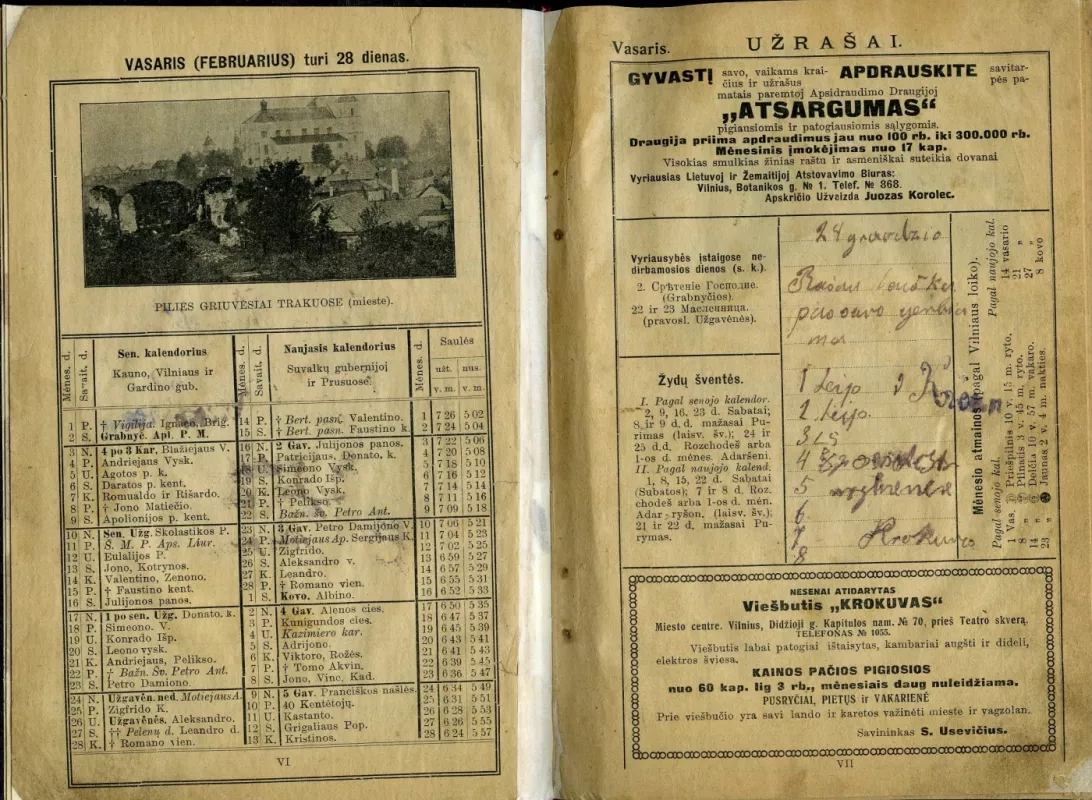 VASARIS (FEBRUARIUS) turi 28 dienas.
PILIES GRIUVĖSIAI TRAKUOSE (mieste).
Mėnes. d.
Savait. d.
Sen. kalendorius
Kauno, Vilniaus ir
Gardino gub.
Mėnes. d.
Savait. d.
Naujasis kalendorius
Suvalkų gubernijoj
ir Prusuose.
Mėnes. d.
Saulės
užt. nus.
v. m. v. m.
1 P. † Vigilija. Ignaco, Brig. 14 P. † Bert. pasn. Valentino. 1 7 26 5 02
2 S. Grabnyč. Apl. P. M. 15 S. † Bert. pasn. Faustino k. 2 7 24 5 04
3 N. 4 po 3 Kar, Blažiejaus V. 16 N. 2 Gav. Julijonos panos. 3 7 22 5 06
4 P. Andriejaus Vysk. 17 P. Patricijaus, Donato, k. 4 7 20 5 08
5 U. Agotos p. k. 18 U. Simeono Vysk. 5 7 18 5 10
6 S. Daratos p. kent. 19 S. Konrado Išp. 6 7 16 5 12
7 K. Romualdo ir Rišardo. 20 K. Leono Vysk. 7 7 14 5 14
8 P. † Jono Matiečio. 21 P. † Pelikso. 8 7 11 5 16
9 S. Apolionijos p. kent. 22 S. Bažn. šv. Petro Ant. 9 7 09 5 18
10 N. Sen. Užg. Skolastikos P. 23 N. 3 Gav. Petro Damijono V. 10 7 06 5 21
11 P. Š. M. P. Aps. Liur. 24 P. Motiejaus Ap. Sergijaus K. 11 7 04 5 23
12 U. Eulalijos P. 25 U. Zigfrido. 12 7 02 5 25
13 S. Jono, Kotrynos. 26 S. Aleksandro v. 13 6 59 5 27
14 K. Valentino, Zenono. 27 K. Leandro. 14 6 57 5 29
15 P. † Faustino kent. 28 P. † Romano vien. 15 6 55 5 31
16 S. Julijonos panos. 1 S. Kovo. Albino. 16 6 52 5 33
17 N. 1 po sen. Užg. Donato. k. 2 N. 4 Gav. Alenos cies. 17 6 50 5 35
18 P. Simeono. V. 3 P. Kunigundos cies. 18 6 47 5 37
19 U. Konrado Išp. 4 U. Kazimiero kar. 19 6 45 5 39
20 S. Leono vysk. 5 S. Adrijono. 20 6 43 5 41
21 K. Andriejaus, Pelikso. 6 K. Viktoro, Rožės. 21 6 41 5 43
22 P. † Bažn. Šv. Petro Ant. 7 P. † Tomo Akvin. 22 6 39 5 45
23 S. Petro Damiono. 8 S. Jono, Vinc. Kad. 23 6 36 5 47
24 N. Užgavėn. ned. Motiejaus A. 9 N. 5 Gav. Pranciškos našlės. 24 6 34 5 49
25 P. Zigfrido K. 10 P. 40 Kentėtojų. 25 6 31 5 51
26 U. Užgavėnės. Aleksandro. 11 U. Kastanto. 26 6 28 5 53
27 S. †† Pelenų d. Leandro d. 12 S. Grigaliaus Pop. 27 6 26 5 55
28 K. † Romano vien. 13 K. Kristinos. 28 6 24 5 57
VI
Vasaris. UŽRAŠAI.
GYVASTĮ savo, vaikams krai- APDRAUSKITE savitar-
čius ir užrašus pės pa-
matais paremtoj Apsidraudimo Draugijoj
„ATSARGUMAS“
pigiausiomis ir patogiausiomis sąlygomis.
Draugija priima apdraudimus jau nuo 100 rb. iki 300.000 rb.
Mėnesinis įmokėjimas nuo 17 kap.
Visokias smulkias žinias raštu ir asmeniškai suteikia dovanai
Vyriausias Lietuvoj ir Žemaitijoj Atstovavimo Biuras:
Vilnius, Botanikos g. № 1. Telef. № 868.
Apskričio Užveizda Juozas Korolec.
Vyriausybės įstaigose ne-
dirbamosios dienos (s. k.).
2. Срѣтеніе Господне.
(Grabnyčios).
22 ir 23 Масленница.
(pravosl. Užgavėnės).
Žydų šventės.
I. Pagal senojo kalendor.
2, 9, 16, 23 d. Sabatai;
8 ir 9 d.d. mažasai Pu-
rimas (laisv. šv.); 24 ir
25 d.d. Rozchodeš arba
1-os d. mėnes. Adaršeni.
II. Pagal naujojo kalend.
1, 8, 15, 22 d. Sabatai
(Subatos); 7 ir 8 d. Roz.
chodeš arba 1-os d. mėn.
Adar-ryšon, (laisv. šv.);
21 ir 22 d. mažasai Pu-
rymas.
24 graodzio
1 Leijo
2 Leijo.
3
4
5
6
7 Krokuvo
8
Mėnesio atmainos (pagal Vilniaus loiko).
Pagal senojo kal. Pagal naujojo kal.
1 Vas. Priešpilnis 10 v. 15 m. ryto. 14 vasario
8 „ Pilnatis 3 v. 45 m. ryto. 21 „
14 „ Delčia 10 v. 57 m. vakaro. 27 „
23 „ Jaunas 2 v. 4 m. nakties. 8 kovo
NESENAI ATIDARYTAS
Viešbutis „KROKUVAS“
Miesto centre. Vilnius, Didžioji g. Kapitulos nam. № 70, prieš Teatro skverą.
TELEFONAS № 1055.
Viešbutis labai patogiai ištaisytas, kambariai augšti ir dideli,
elektros šviesa.
KAINOS PAČIOS PIGIOSIOS
nuo 60 kap. lig 3 rb., mėnesiais daug nuleidžiama.
PUSRYČIAI, PIETŲS ir VAKARIENĖ
Prie viešbučio yra savi lando ir karetos važinėti mieste ir vagzolan.
Savininkas S. Usevičius.
VII